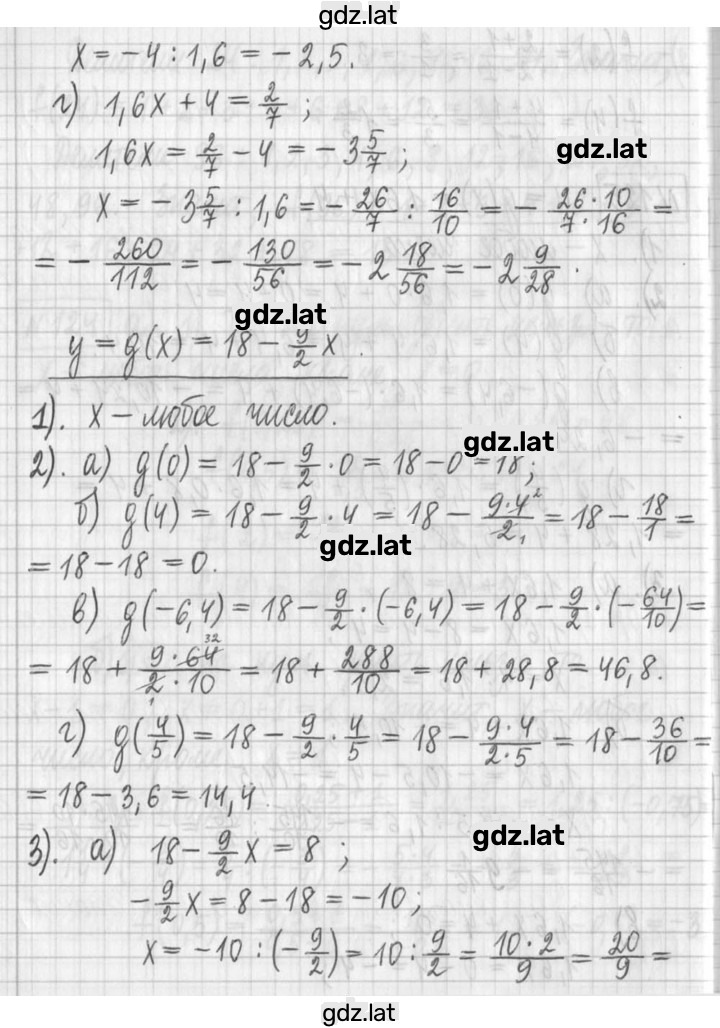 gdz.lat
x = −4 : 1,6 = −2,5.
г) 1,6x + 4 = 2/7 ;
1,6x = 2/7 − 4 = −3 5/7 ;
gdz.lat
x = −3 5/7 : 1,6 = −26/7 : 16/10 = −(26·10)/(7·16) =
= −260/112 = −130/56 = −2 18/56 = −2 9/28 .
gdz.lat
y = g(x) = 18 − 9/2 x .
1). x – любое число.
gdz.lat
2). а) g(0) = 18 − 9/2 · 0 = 18 − 0 = 18;
б) g(4) = 18 − 9/2 · 4 = 18 − (9·4²)/(2₁) = 18 − 18/1 =
gdz.lat
= 18 − 18 = 0.
в) g(−6,4) = 18 − 9/2 · (−6,4) = 18 − 9/2 · (−64/10) =
= 18 + (9·64³²)/(2₁·10) = 18 + 288/10 = 18 + 28,8 = 46,8.
г) g(4/5) = 18 − 9/2 · 4/5 = 18 − (9·4)/(2·5) = 18 − 36/10 =
= 18 − 3,6 = 14,4.
gdz.lat
3). а) 18 − 9/2 x = 8 ;
−9/2 x = 8 − 18 = −10;
x = −10 : (−9/2) = 10 : 9/2 = (10·2)/9 = 20/9 =
gdz.lat